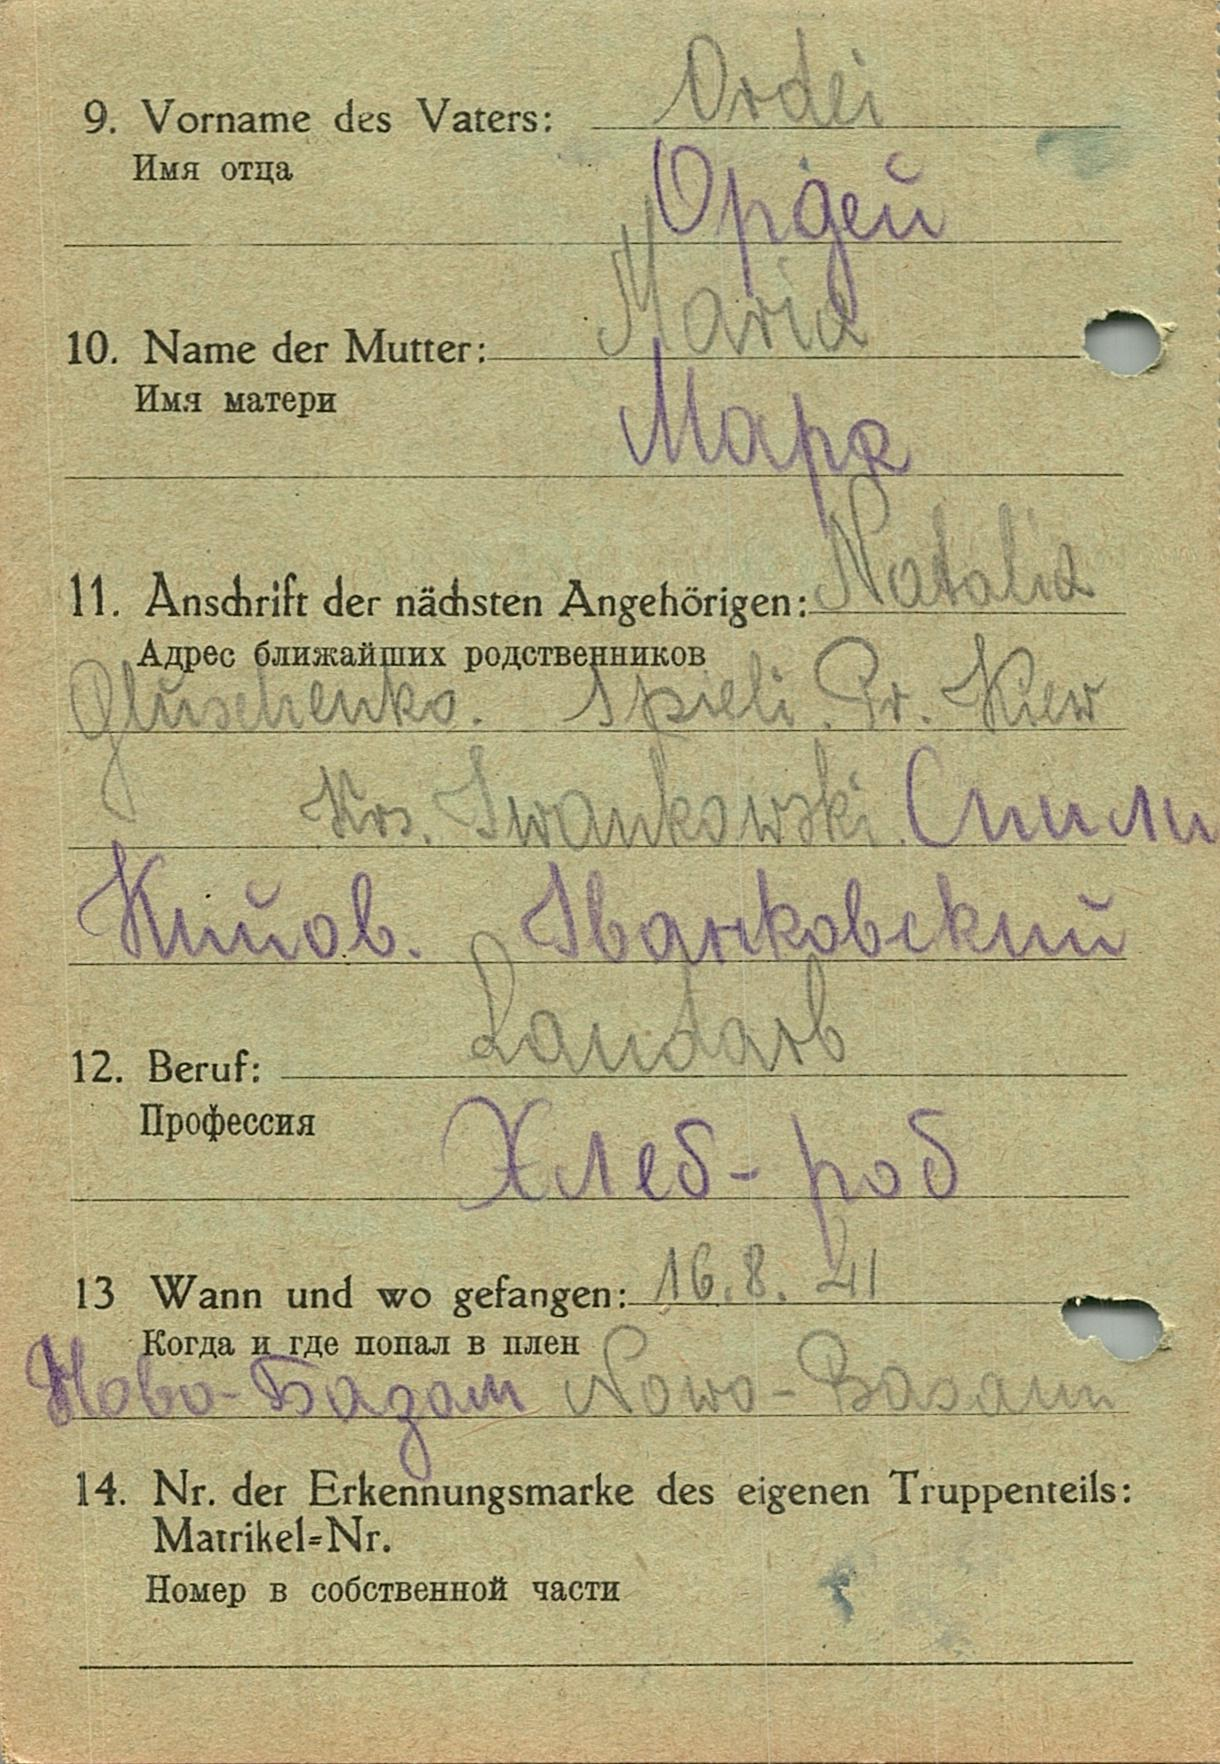 Ordei
9. Vorname des Vaters:
Имя отца
Ордей
Maria
10. Name der Mutter:
Имя матери
Мария
11. Anschrift der nächsten Angehörigen: Natalia
Адрес ближайших родственников
Gluschenko. Spieli. Pr. Kiew
Krs. Iwankowski. Спили
Кийов. Іванковский
Landarb
12. Beruf:
Профессия
Хлеб-роб
13 Wann und wo gefangen: 16.8.41
Когда и где попал в плен
Ново-Базам Nowo-Basann
14. Nr. der Erkennungsmarke des eigenen Truppenteils:
Matrikel=Nr.
Номер в собственной части